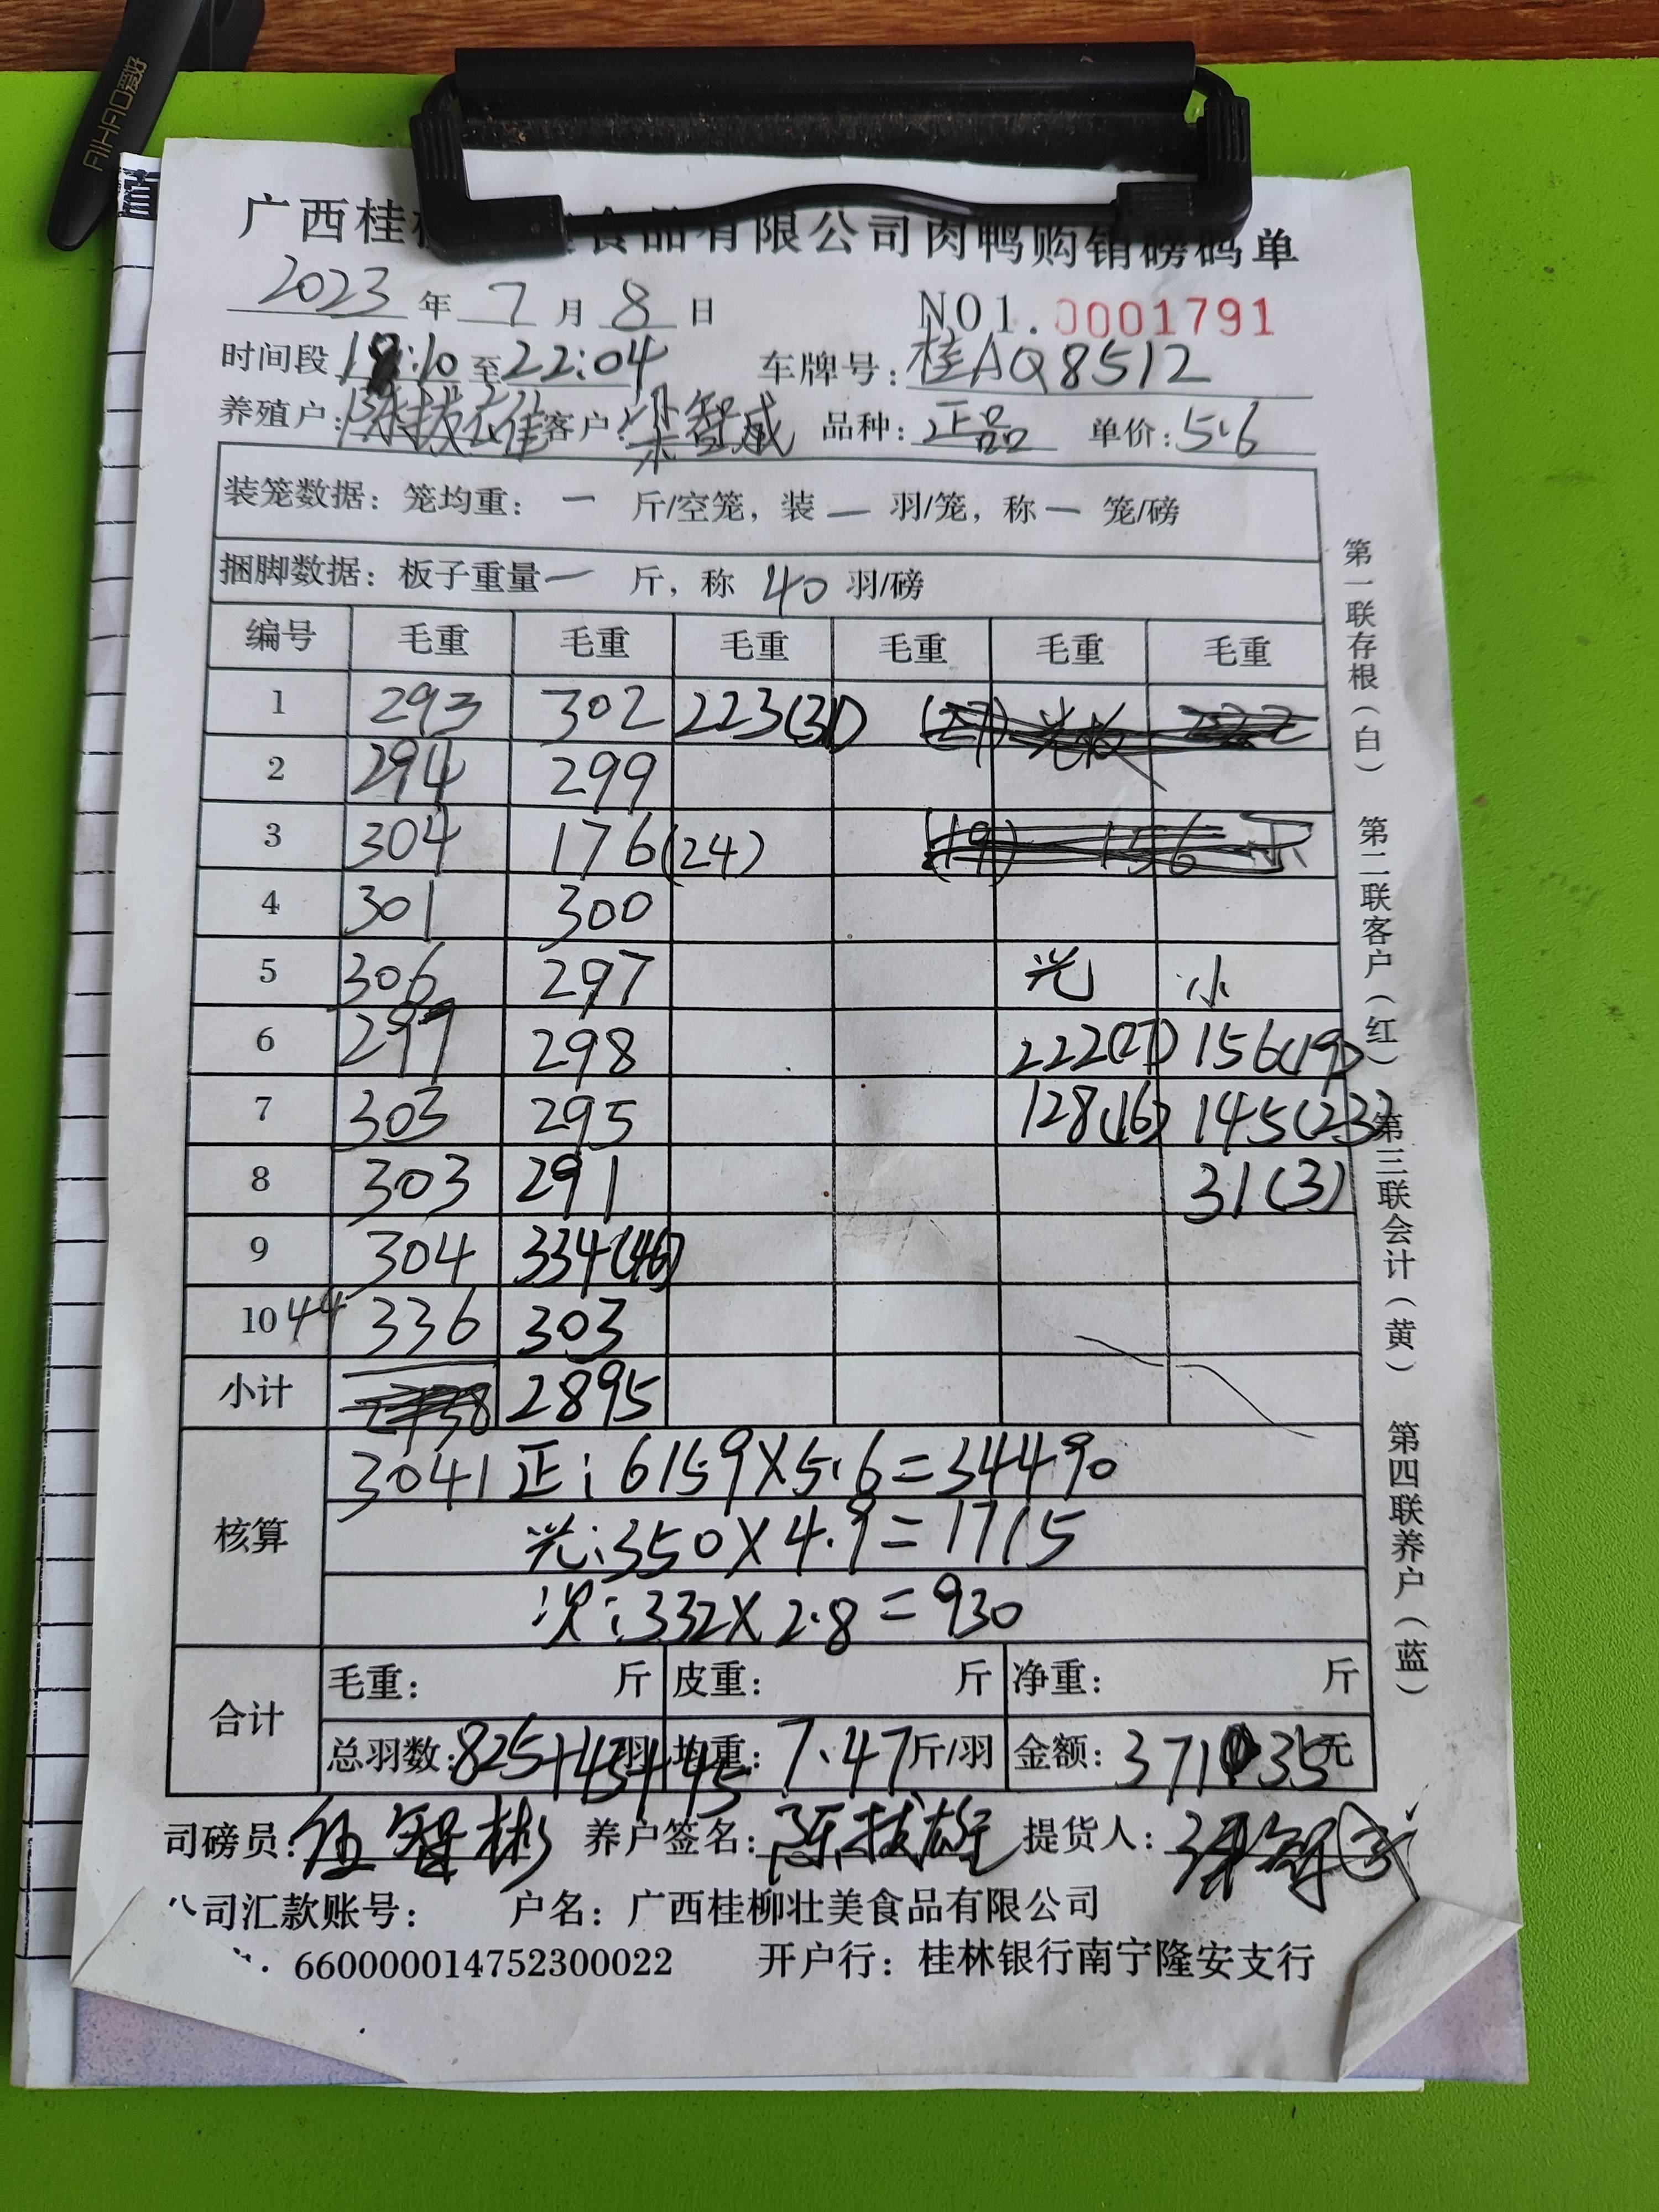 AIHAO爱好
广西桂 食品有限公司肉鸭购销磅码单
2023 年 7 月 8 日 NO1. 0001791
时间段 :10 至 22:04 车牌号: 桂AQ8512
养殖户: 陈技雄 客户: 梁智威 品种: 正品 单价: 5.6
装笼数据: 笼均重: 一 斤/空笼, 装 一 羽/笼, 称 一 笼/磅
捆脚数据: 板子重量 一 斤, 称 40 羽/磅
编号 毛重 毛重 毛重 毛重 毛重 毛重
1 293 302 223(31) (27) 光板 222
2 294 299
3 304 176(24) (19) 156 小
4 301 300
5 306 297 光 小
6 297 298 222(27) 156(19)
7 303 295 128(16) 145(23)
8 303 291 31(3)
9 304 334(46)
10 44 336 303
小计 2895
核算 3041 正: 6159×5.6=34490
光: 350×4.9=1715
次: 332×2.8=930
合计 毛重: 斤 皮重: 斤 净重: 斤
总羽数: 825+43+45 羽 均重: 7.47 斤/羽 金额: 37135 元
司磅员: 伍智彬 养户签名: 陈技雄 提货人:
司汇款账号: 户名: 广西桂柳壮美食品有限公司
660000014752300022 开户行: 桂林银行南宁隆安支行
第一联存根(白) 第二联客户(红) 第三联会计(黄) 第四联养户(蓝)